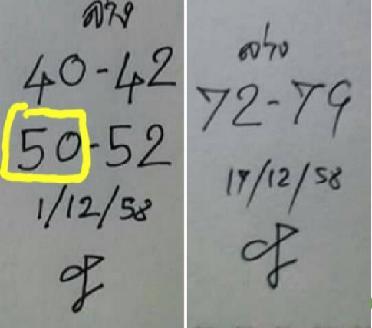 ล่าง
40-42
50-52
1/12/58
ล่าง
72-79
17/12/58